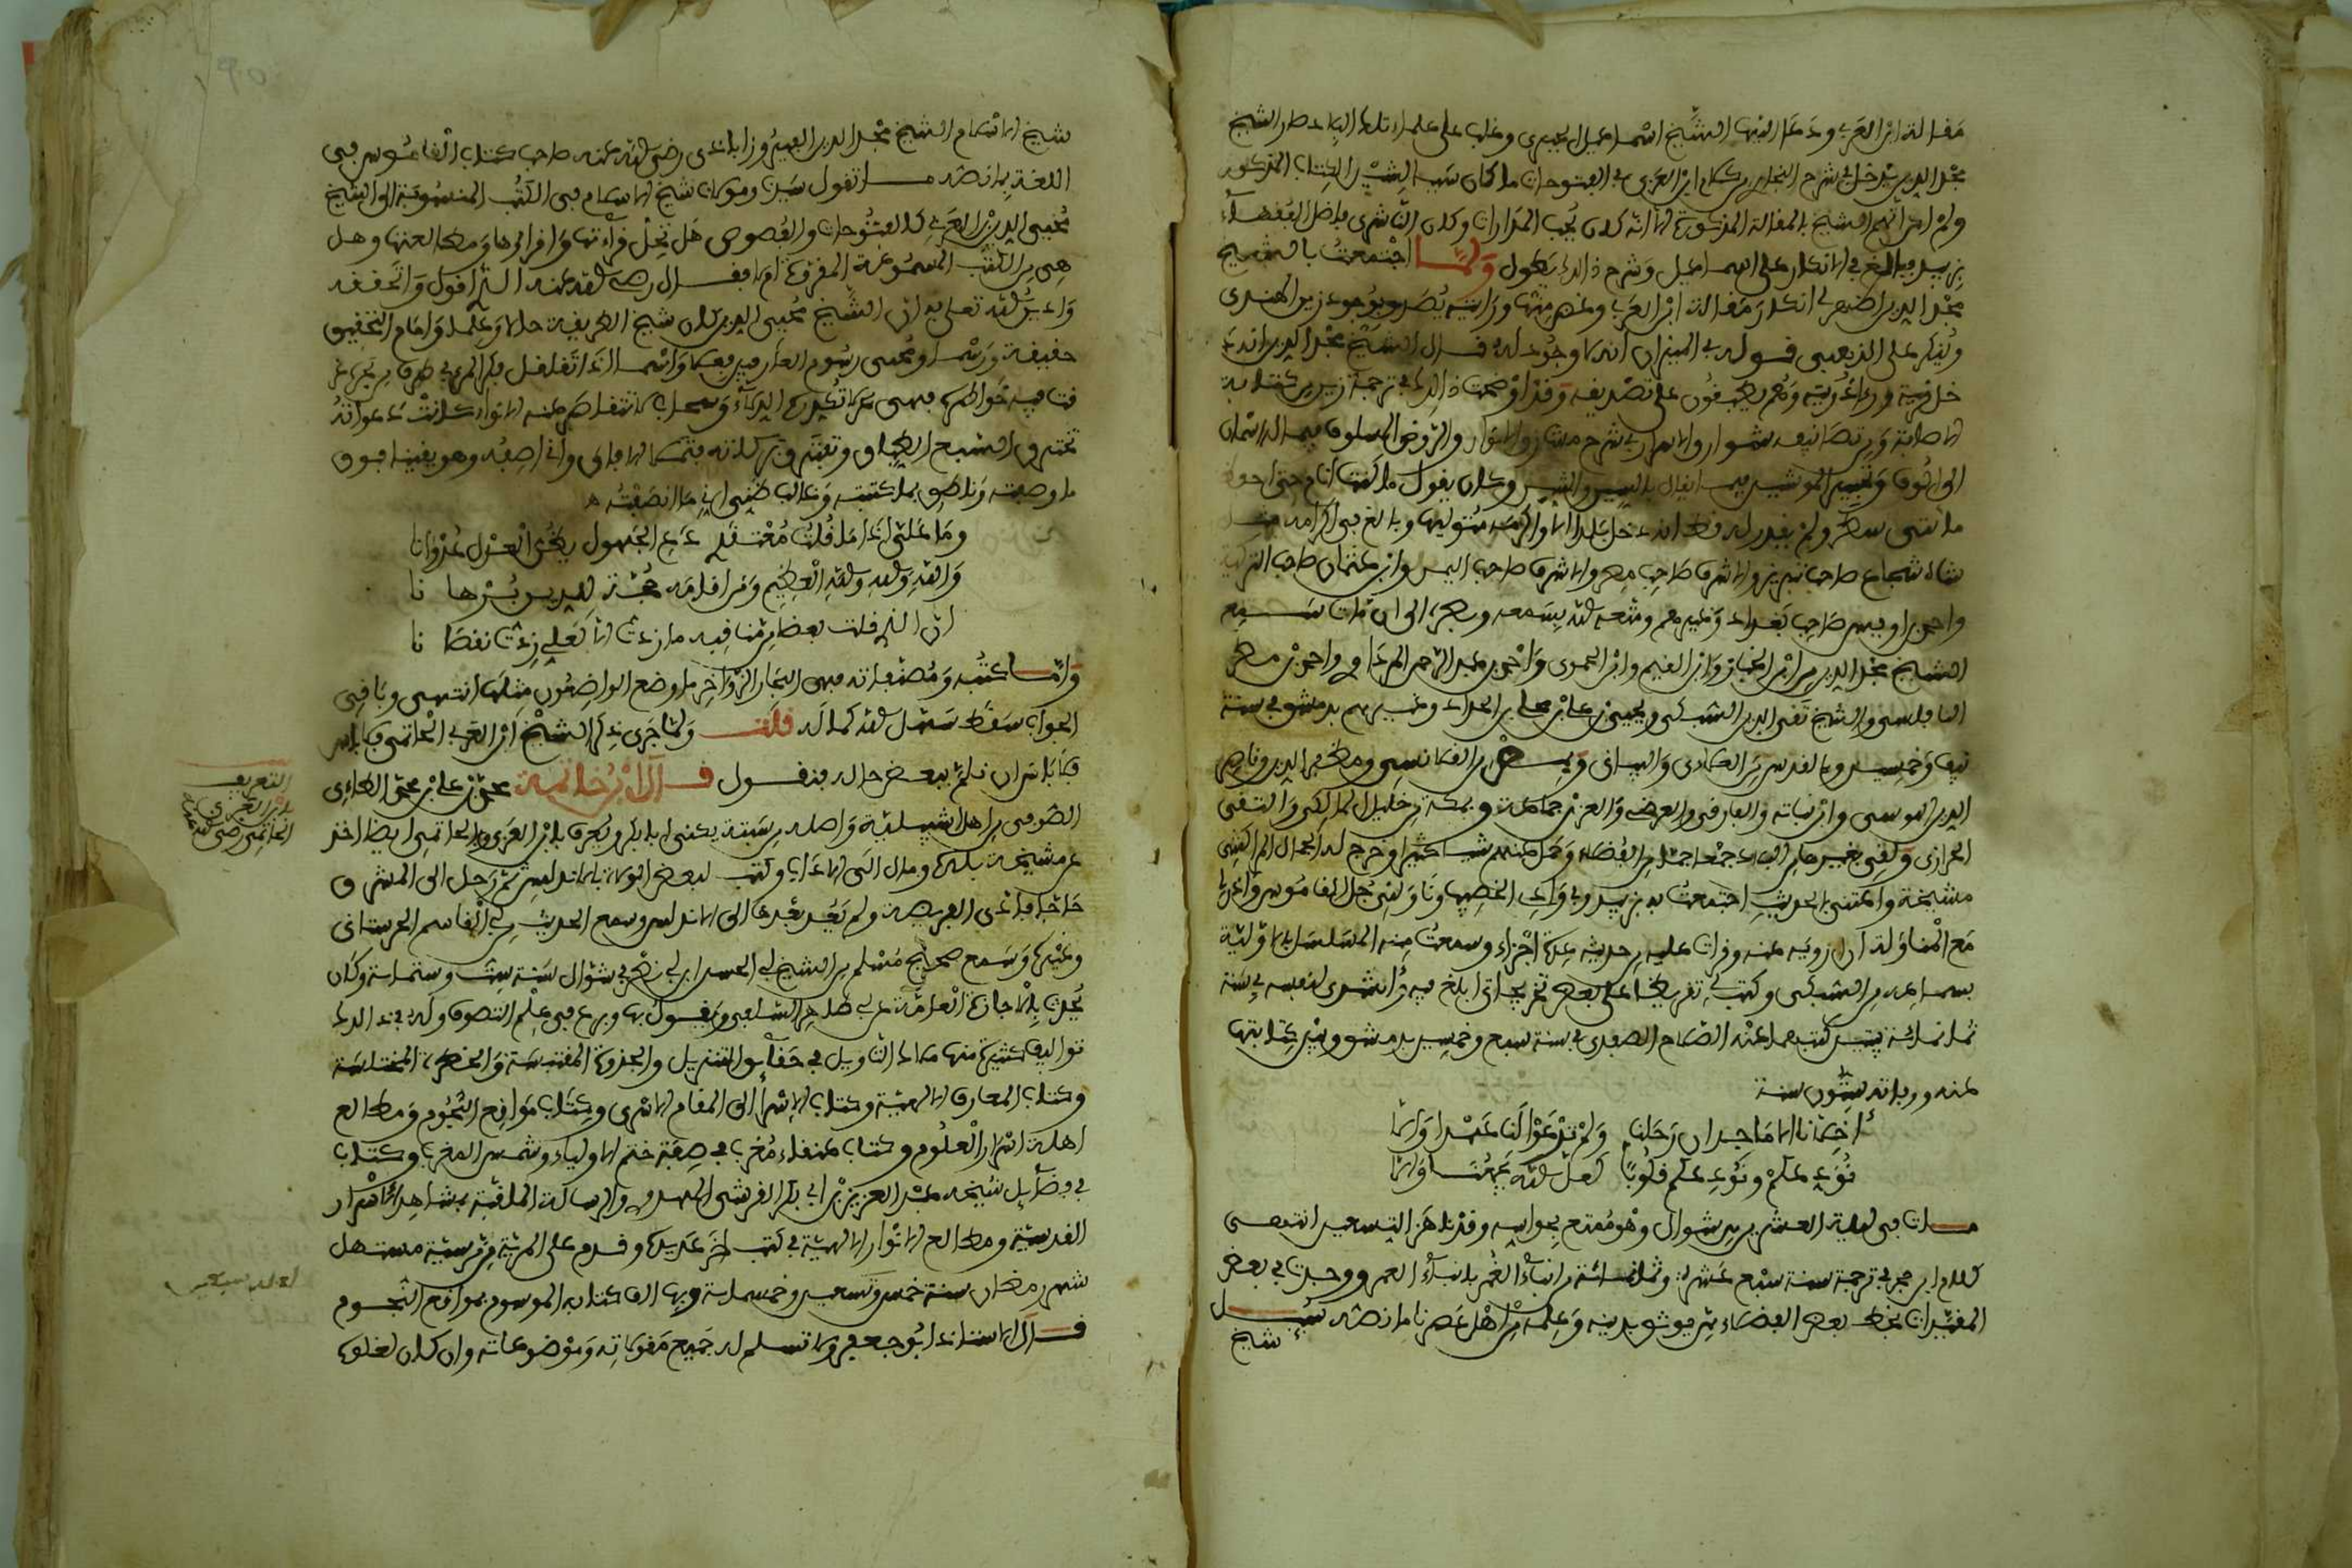 مقالة ابن العربي ودعا اليها الشيخ اسماعيل الجبرتي وغلب على علماء تلك البلاد صار الشيخ
مجد الدين يدخل في شرح البخاري من كلام ابن العربي في الفتوحات ما كان سببا لشين الكتاب المذكور
ولم اكن اتهم الشيخ بالمقالة المذكورة الا انه كان يحب المدارات وكان الناشري فاضل الفقهاء
بزبيد يبالغ في الانكار على اسماعيل وشرح ذالك يطول ولما اجتمعت بالشيخ
مجد الدين اظهر لي انكار مقالة ابن العربي وغض منها ورايته يصدق بوجود زين الهندي
وينكر على الذهبي قوله في الميزان انه لا وجود له قال الشيخ مجد الدين انه دخل
قريته وراى ذريته وهم مطبقون على تصديقه وقد اوضحت ذالك في ترجمة زين من كتاب
الاصابة ومن تصانيفه شوارق الاسرار في شرح مشارق الانوار والروض المسلوف فيما له اسمان
الى الوف وتحبير الموشين فيما يقال بالسين والشين وكان يقول ما كنت انام حتى احفظ
مائتي سطر ولم يقدر له قط انه دخل بلدا الا واكرمه متوليها وبالغ في اكرامه مثل
شاه شجاع صاحب تبريز والاشرف صاحب مصر والاشرف صاحب اليمن وابن عثمان صاحب التركية
واحمد بن اويس صاحب بغداد وغيرهم ومتعه الله بسمعه وبصره الى ان مات سمع
الشيخ مجد الدين من ابن الخباز وابن القيم وابن الحموي واحمد بن عبد الرحمن المرداوي واحمد بن مطر
النابلسي والشيخ تقي الدين السبكي ويحيى بن علي بن مجلي بن الحداد وغيرهم بدمشق في سنة
نيف وخمسين وبالقدس من العلائي والبياني وبمصر من القلانسي ومظفر الدين وناصر
الدين التونسي وابن نباته والفارقي والعرضي والعز بن جماعة وبمكة من خليل المالكي والتقي
الحرازي ولقي بغير هاذه البلاد جمعا جما من الفضلاء وحمل عنهم شيا كثيرا وخرج له الجمال المراكشي
مشيخة واعتنى بالحديث اجتمعت به بزبيد وفي وادي الخصيب وناولني جل القاموس واذن لي
مع المناولة ان ارويه عنه وقرات عليه من حديثه عدة اجزاء وسمعت منه المسلسل بالاولية
بسماعه من السبكي وكتب لي تقريظا على بعض تخريجاتي ابلغ فيه وانشدني لنفسه في سنة
ثمانمائة بيتين كتبهما عنه الصلاح الصفدي في سنة سبع وخمسين بدمشق وبين كتابتهما
عنه ووفاته ستون سنة
أخلانا الاماجد ان رحلنا ولم ترعوا لنا عهدا والا
نودعكم ونودعكم قلوبا لعل الله يجمعنا والا
مات في ليلة العشرين من شوال وهو ممتع بحواسه وقد ناهز التسعين انتهى
كلام ابن حجر في ترجمة سنة سبع عشرة وثمانمائة من انباء الغمر بابناء العمر ووجدت في بعض
المقيدات بخط بعض الفضلاء ممن يوثق بدينه وعلمه من اهل عصرنا ما نصه سئل
شيخ
شيخ الاسلام الشيخ مجد الدين الفيروزابادي رضي الله عنه صاحب كتاب القاموس في
اللغة بما نصه ما تقول سيدنا ومولانا شيخ الاسلام في الكتب المنسوبة الى الشيخ
محيي الدين بن العربي كالفتوحات والفصوص هل تحل قراءتها واقراؤها ومطالعتها وهل
هي من الكتب المسموعة المقروءة ام لا فقال رضي الله عنه الذي اقول واتحققه
وادين الله تعلى به ان الشيخ محيي الدين كان شيخ الطريقة حالا وعلما وامام التحقيق
حقيقة ورسما ومحيي رسوم المعارف فعلا واسما اذا تغلغل فكر المرء في طرف من بحره غرقت
فيه خواطره فهو بحر لا تكدره الدلاء وسحاب لا تتقاصر عنه الانواء كانت دعواته
تخترق السبع الطباق وتفترق بركاته فتملأ الافاق واني اصفه وهو يقينا فوق
ما وصفته وناطق بما كتبته وغالب ظني اني ما انصفته
وما علي اذا ما قلت معتقدي دع الجهول يظن العدل عدوانا
والله والله والله العظيم ومن اقامه حجة للدين برهانا
ان الذي قلت بعض من مناقبه ما زدت الا لعلي زدت نقصانا
واما كتبه ومصنفاته فهي البحار الزواخر ما وضع الواضعون مثلها انتهى وباقي
الجواب سقط سهل الله كماله قلت ولما جرى ذكر الشيخ ابن العربي الحاتمي فلا باس
فلا باس ان نلم ببعض حاله فنقول قال ابن خاتمة محمد بن علي بن محمد الطاءي
الصوفي من اهل اشبيلية واصله من سبتة يكنى ابا بكر ويعرف بابن العربي وبالحاتمي ايضا اخذ
عن مشيخة بلده ومال الى الاداب وكتب لبعض الولاة بالاندلس ثم رحل الى المشرق
حاجا فادى الفريضة ولم يعد بعدها الى الاندلس وسمع الحديث من ابي القاسم الحرستاني
وغيره وسمع صحيح مسلم من الشيخ ابي الحسن ابن ابي نصر في شوال سنة ست وستمائة وكان
يحدث بالاجازة العامة عن ابي طاهر السلفي ويقول بها وبرع في علم التصوف وله في ذالك
تواليف كثيرة منها الجمع والتفصيل في حقائق التنزيل والجذوة المقتبسة والخطرة المختلسة
وكتاب المعارف الالهية وكتاب الاسرا الى المقام الاسرى وكتاب مواقع النجوم ومطالع
اهلة اسرار العلوم وكتاب عنقاء مغرب في صفة ختم الاولياء وشمس المغرب وكتاب
في فضائل شيخه عبد العزيز بن ابي بكر القرشي المهدوي والرسالة الملقبة بمشاهد الاسرار
القدسية ومطالع الانوار الالهية في كتب اخر عديدة وقدم على المرية من مرسية مستهل
شهر رمضان سنة خمس وتسعين وخمسمائة وبها الف كتابه الموسوم بمواقع النجوم
قال الاستاذ ابو جعفر ولا تسلم له جميع مقولاته وموضوعاته وان كان لغلوه
التعريف
بابن العربي
الحاتمي رضي الله عنه